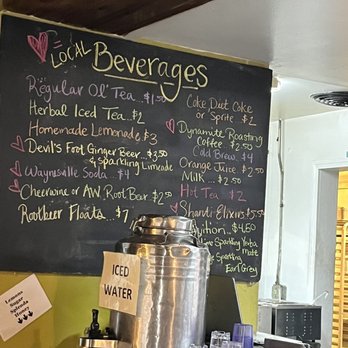 = LOCAL Beverages
Regular Ol' Tea... $1.50
Herbal Iced Tea... $2
Homemade Lemonade $3
Devil's Foot Ginger Beer... $3.50
& Sparkling Limeade
Waynesville Soda... $4
Cheerwine or AW Root Beer $2.50
Rootbeer Floats... $7
Coke Diet Coke
or Sprite... $2
Dynamite Roasting
Coffee $2.50
Cold Brew.. $4
Orange Juice $2.50
Milk... $2.50
Hot Tea $2
Shanti Elixirs $5.50
$4.50
Sparkling Yerba
Mate
Sparkling
Earl Grey
ICED
WATER
Lemons
Sugar
Splenda
Honey